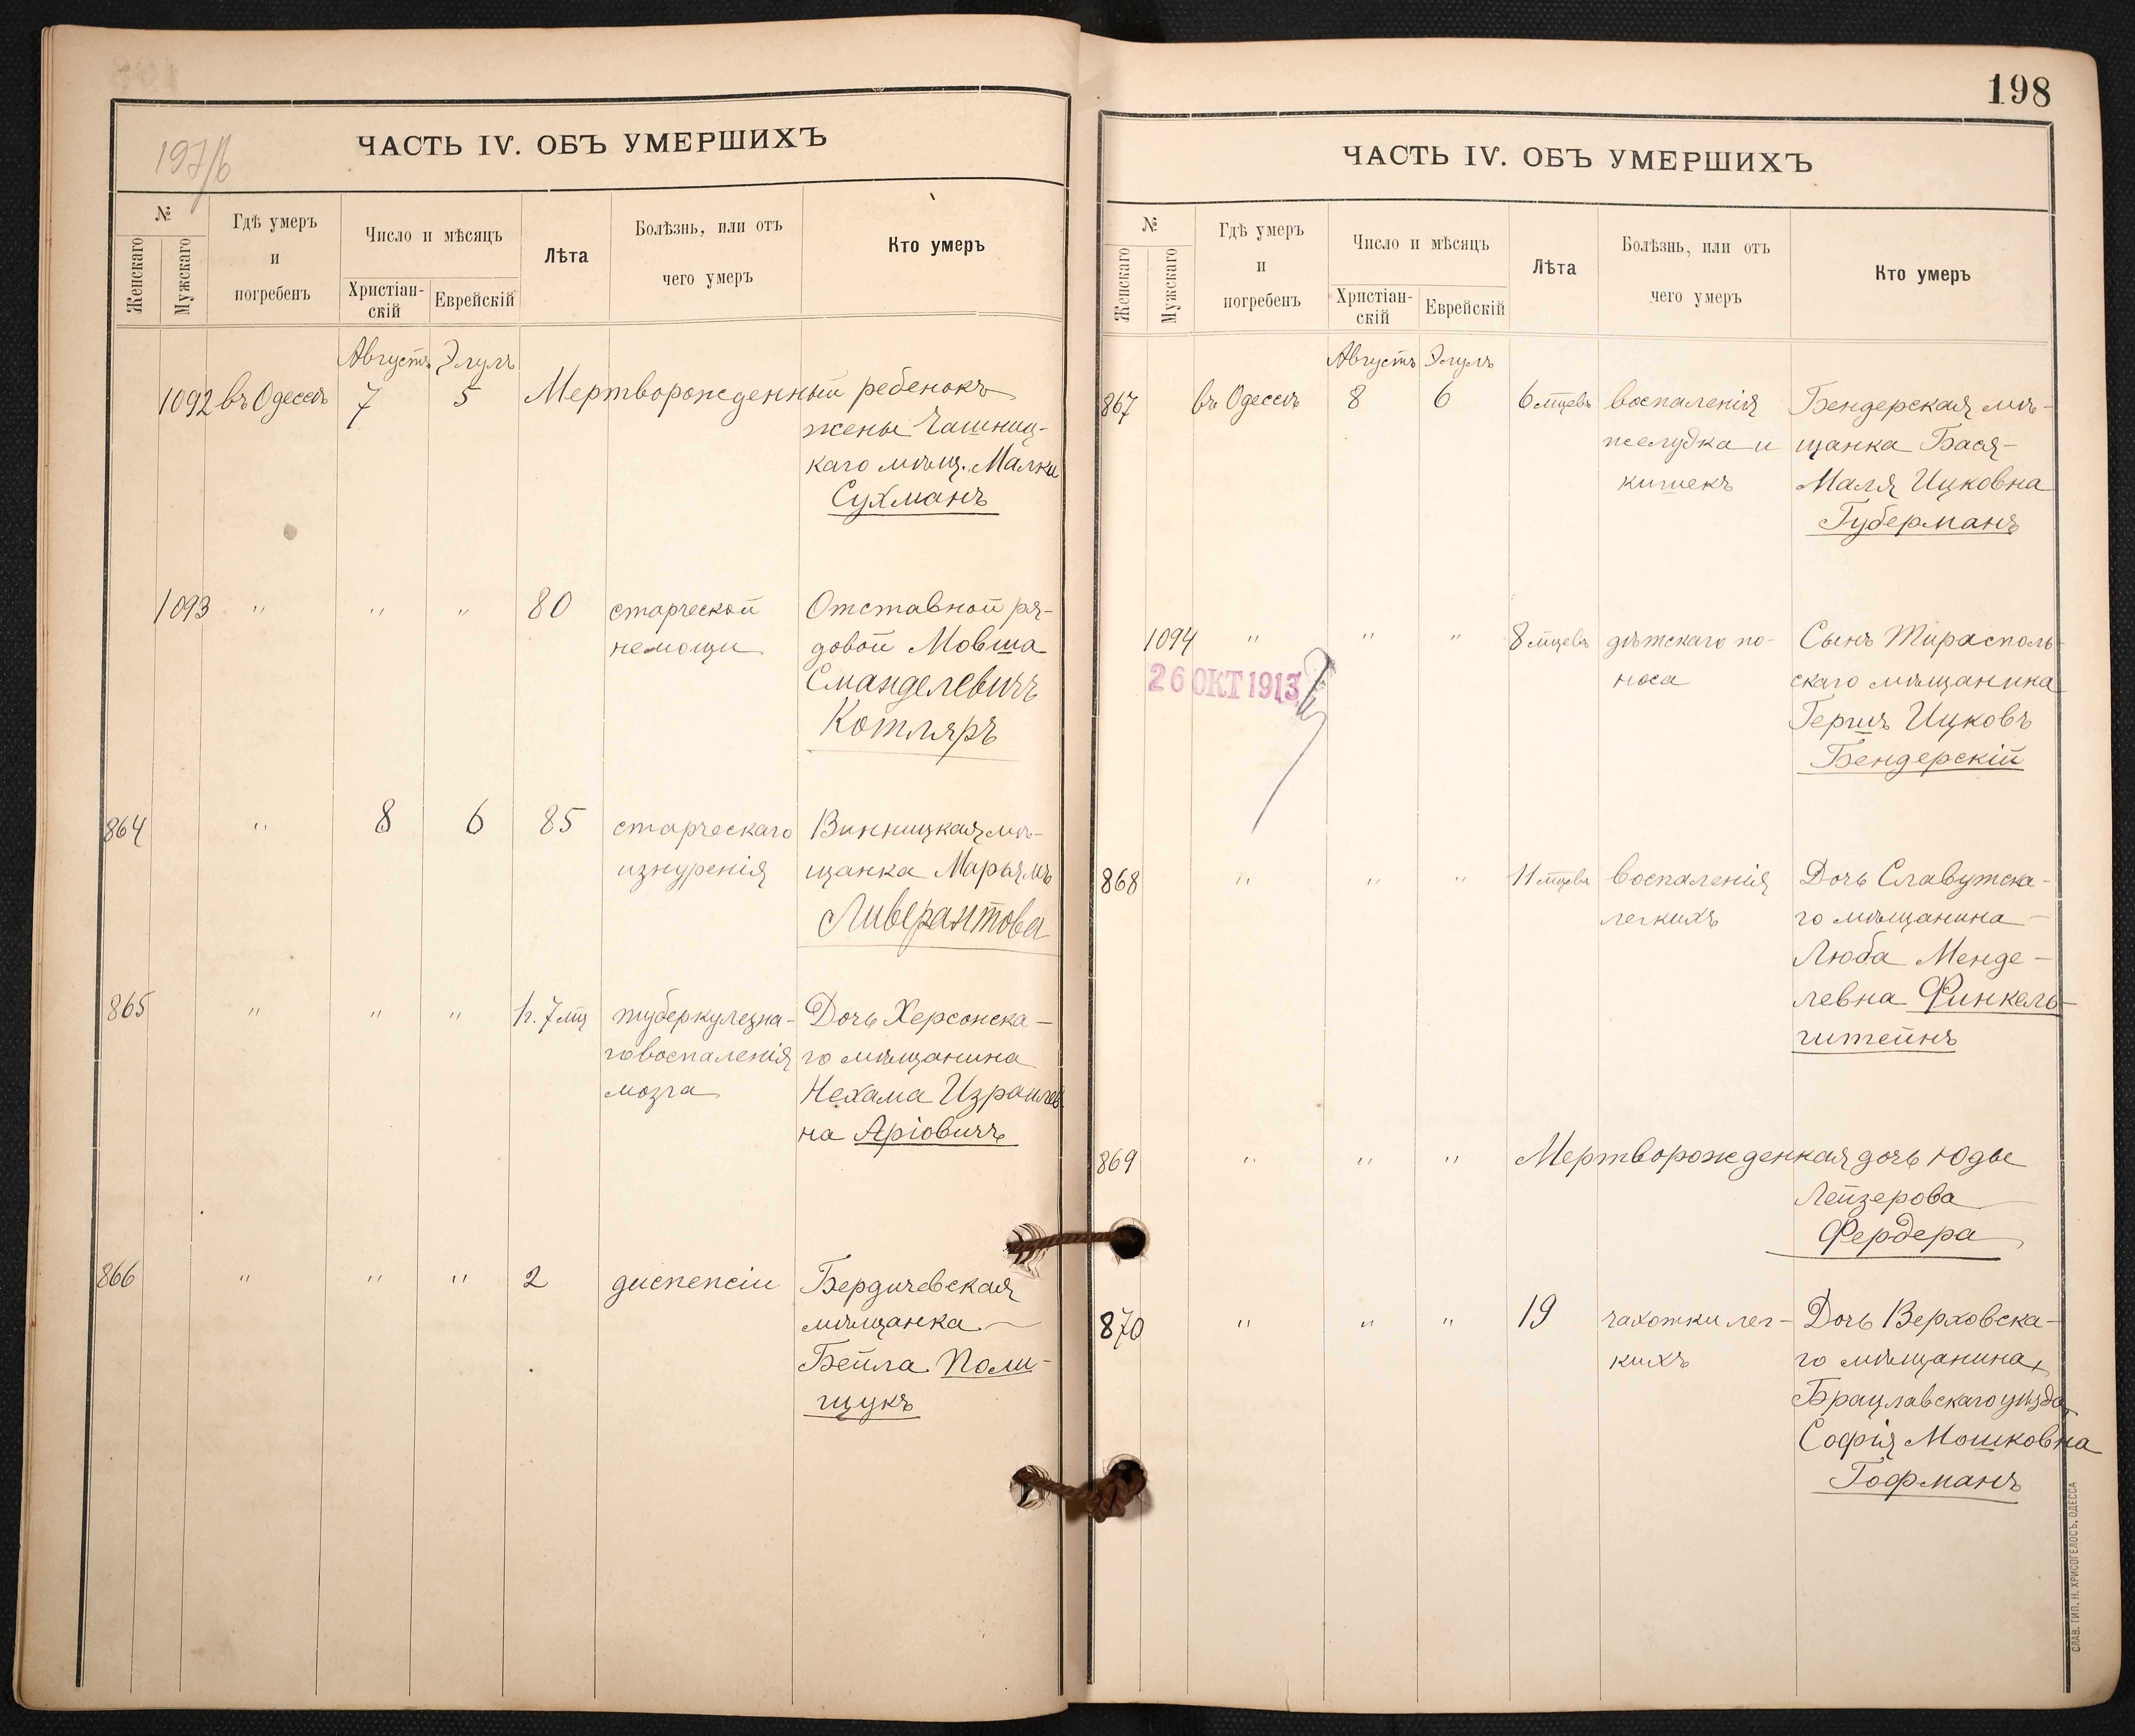 197/б
ЧАСТЬ IV. ОБЪ УМЕРШИХЪ
№
Женскаго
Мужскаго
Гдѣ умеръ
и
погребенъ
Число и мѣсяцъ
Христіан-
скій
Еврейскій
Лѣта
Болѣзнь, или отъ
чего умеръ
Кто умеръ
Августъ Элулъ
1092 въ Одессѣ 7 5 Мертворожденный ребенокъ
жены Чашниц-
каго мѣщ. Малки
Сухманъ
1093 " " " 80 старческой Отставной ря-
немощи довой Мовша
Сманделевичъ
Котляръ
864 " 8 6 85 старческаго Винницкая мѣ-
изнуренія щанка Марьямъ
Ливерантова
865 " " " 1 г. 7 мц туберкулезна- Дочь Херсонска-
го воспаленія го мѣщанина
мозга Нехама Израилев
на Аріовичъ
866 " " " 2 диспепсіи Бердичевская
мѣщанка
Бейла Поли-
щукъ
198
ЧАСТЬ IV. ОБЪ УМЕРШИХЪ
№
Женскаго
Мужскаго
Гдѣ умеръ
и
погребенъ
Число и мѣсяцъ
Христіан-
скій
Еврейскій
Лѣта
Болѣзнь, или отъ
чего умеръ
Кто умеръ
Августъ Элулъ
867 въ Одессѣ 8 6 6 мцевъ воспаленія Бендерская мѣ-
желудка и щанка Бася-
кишекъ Маля Ицковна
Губерманъ
1094 " " " 8 мцевъ дѣтскаго по- Сынъ Тирасполь-
носа скаго мѣщанина
26 ОКТ 1913
Гершъ Ицковъ
Бендерскій
868 " " " 11 мцевъ воспаленія Дочь Славутска-
легкихъ го мѣщанина
Люба Менде-
левна Финкель-
штейнъ
869 " " " Мертворожденная дочь Юды
Лейзерова
Фердера
870 " " " 19 чахотки лег- Дочь Верховска-
кихъ го мѣщанина,
Брацлавскаго уѣзда,
Софія Мошковна
Гофманъ
СЛАВ. ТИП. Н. ХРИСОГЕЛОСЪ, ОДЕССА